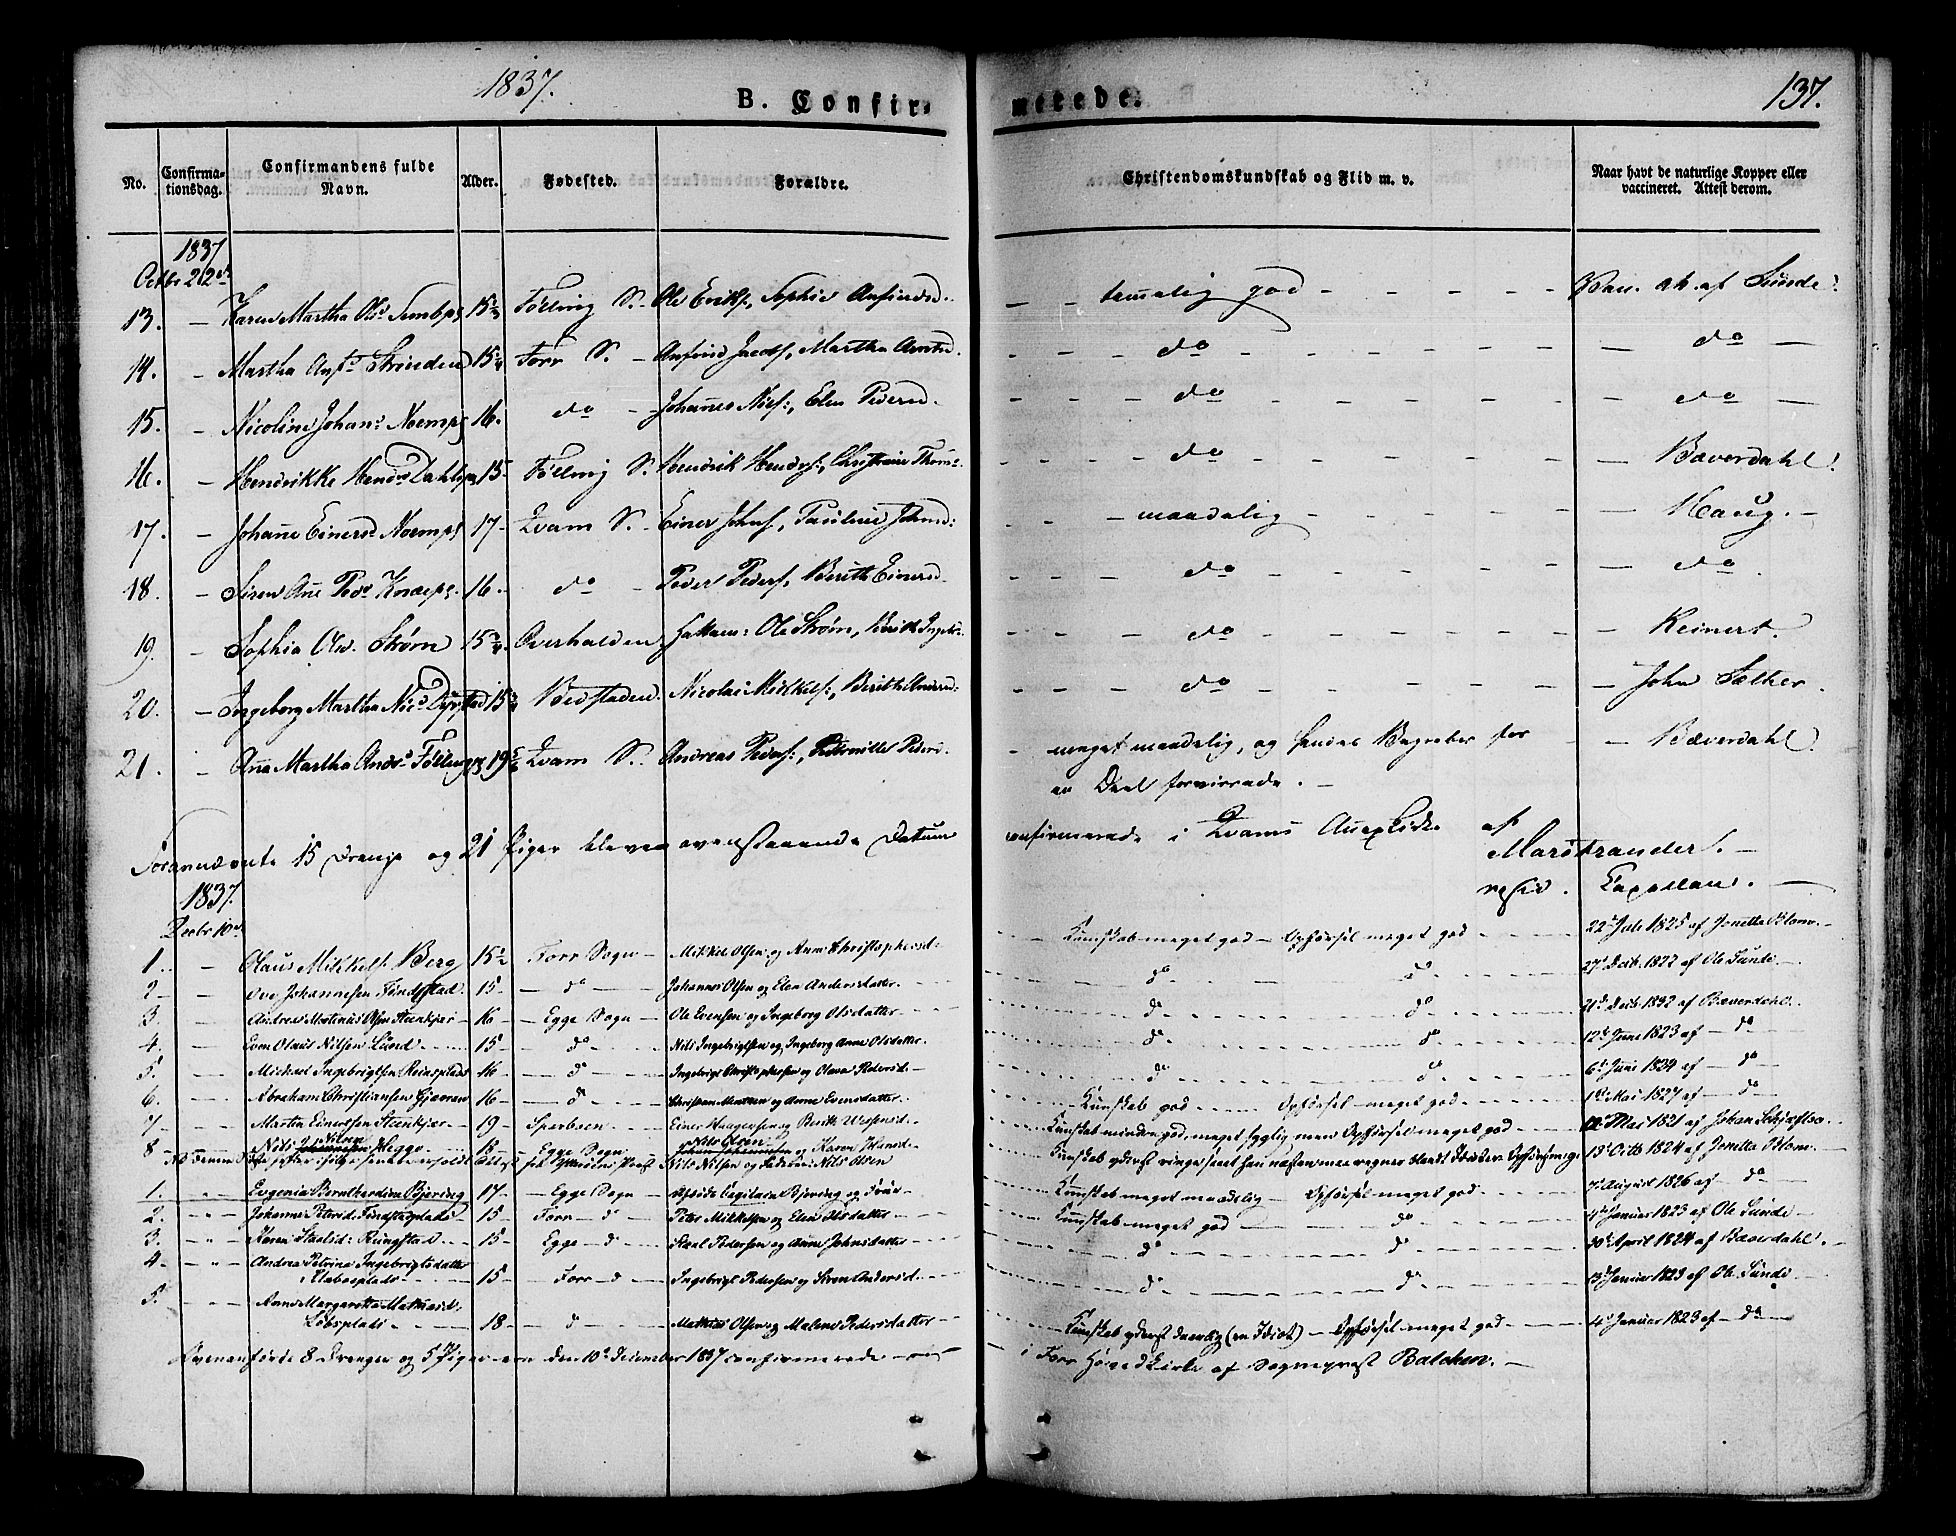 1837.
B. Confirmerede.
137.
No. Confirmationsdag. Confirmandens fulde Navn. Alder. Fødested. Forældre. Christendomskundskab og Flid m. v. Naar havt de naturlige Kopper eller vaccineret. Attest derom.
1837
Octbr 22de
13. – Karen Martha Ols: 15 Følling S. – Ole Eriks:, Sophie – – temelig god – – – – – Vac. af Sunde.
14. – Martha Skrinden 15 Forr S. – Anfind Jacobs:, Martha – – – do – – – – – do –
15. – Nicoline Johans: Noemps 16. do – Johanes Niels:, Elen Pedersd. – – – do – – – – – do –
16. – Hendrikke Hendrs Dahlsps 15 – Følling S. Hendrik Hendrs:, Christine Thoms: – – – do – – – – – Bæverdahl.
17. – Johane Einersd Noemps 17 – Qvam S. – Einer Johns:, Pauline Johnsd: – – – maadelig – – – – – Haug. –
18. – Siren Ane Peds 16. – do – Peder Peders:, Berith Einersd. – – – do – – – – – do.
19. – Sophia Ols. Strøm 15 3/4 Overhalden Ole Strøm, Berith – – – do – – – – – Reinert.
20. – Ingeborg Martha Nics Dyrstad 15 Bedstaden. Nicolai Mikkels:, Berith Andersd: – – – do – – – – – John Sæther.
21. – Ane Martha Ands: Føllingps 19 Qvam S. – Andreas Peders:, Peternille Pedersd. – meget maadelig, og hendes Begreber for – – Bæverdahl.
en Deel forvirrede. –
Forannævnte 15 Drenge og 21 Piger bleve ovenstaaende Datum confirmerede i Qvams Anexkirke af
Marstrander. –
resid. Capellan. –
1837.
Decbr 10de
1. – Olaus Mikkels: Berg 15 1/2 Forr Sogn – Mikkel Olsen og Anne Christophersd: – Kundskab meget god – Opførsel meget god – 22d Juli 1825 af Jonetta Blom. –
2 – – Ove Johannesen Findstad. 15 – – do – Johannes Olsen og Elen Andersdatter. do do 27d Decb. 1822 af Ole Sunde –
3. – Andreas Martinus Olsen Steenkjær – 16 – – Egge Sogn – Ole Evensen og Ingeborg Olsdatter – do do. 21d Decb 1832 af Bæverdahl.
4. – Even Olaus Nilsen Lund 15 – – do – Nils Ingebrigtsen og Ingeborg Anna Olsdatter. do do 12d Juni 1823 af – do –
5. – Michael Ingebrigtsen Reinsplads 16 – – do – Ingebrigt Christophersen og Olava Pedersd. – do do 6d Juni 1824 af – do
6. – Abraham Christiansen Gjævran 16 – – do – Christian Mortsen og Anne Evensdatter. Kundskab god – Opførsel meget god – 1d Mai 1827 af – do –
7 – – Martin Einersen Steenkjær – 19 – Sparboen – Einer Haagensen og Berith Kundskab mindre god, meget sygelig men Opførsel meget god – Mai 1821 af Johan
8 – Nils Nilsen Hegge – 18 – Egge Sogn – Nils Olsen og Karen Hansd. Kundskab yderst ringe 13d Octb 1824 af Jonetta Blom. –
Nils Nilsen og Faderen: Nils Olsen
1. „ „ Evgenia Bernthardine Bjering 17 – – Egge Sogn – Afdøde Capitain Bjering og Frue – Kundskab meget maadelig – Opførsel meget god – August 1826 af – do –
2. – „ – Johanna Petersd. Findstadplads – 15 – Forr – do – Peter Mikkelsen og Elen Olsdatter – Kundskab meget god – do Januar 1823 af Ole Sunde –
3. – „ – Karen Staalsd: Ringstad. 15 – Egge – do – Staal Pedersen og Anne Johnsdatter do do 30d April 1824 af Bæverdahl. –
4 – „ – Andrea Petrine Ingebrigtsdatter
Elaboeplads 15 – Forr – do – Ingebrigt Pedersen og Siren Andersd. do do 13d Januar 1823 af Ole Sunde –
5. – „ – Anne Margaretha Mathiasd:
Løbsplads – 18 – do – Mathias Olsen og Malene Pedersdatter Kundskab yderst daarlig (en Idiot) – Opførsel meget god – 4d Januar 1823 af – do –
Ovenanførte 8 Drenge og 5 Piger ere den 10d December 1837 confirmerede – i Forr Hovedkirke af Sognepræst Balchen. –